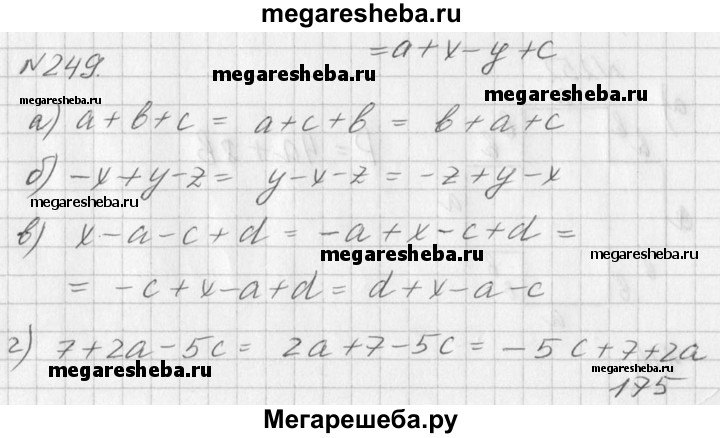 megaresheba.ru
№249.
= a + x - y + c
megaresheba.ru
megaresheba.ru
megaresheba.ru
а) a + b + c = a + c + b = b + a + c
б) -x + y - z = y - x - z = -z + y - x
megaresheba.ru
megaresheba.ru
в) x - a - c + d = -a + x - c + d =
megaresheba.ru
megaresheba.ru
= -c + x - a + d = d + x - a - c
г) 7 + 2a - 5c = 2a + 7 - 5c = -5c + 7 + 2a
megaresheba.ru
megaresheba.ru
175
Мегарешеба.ру